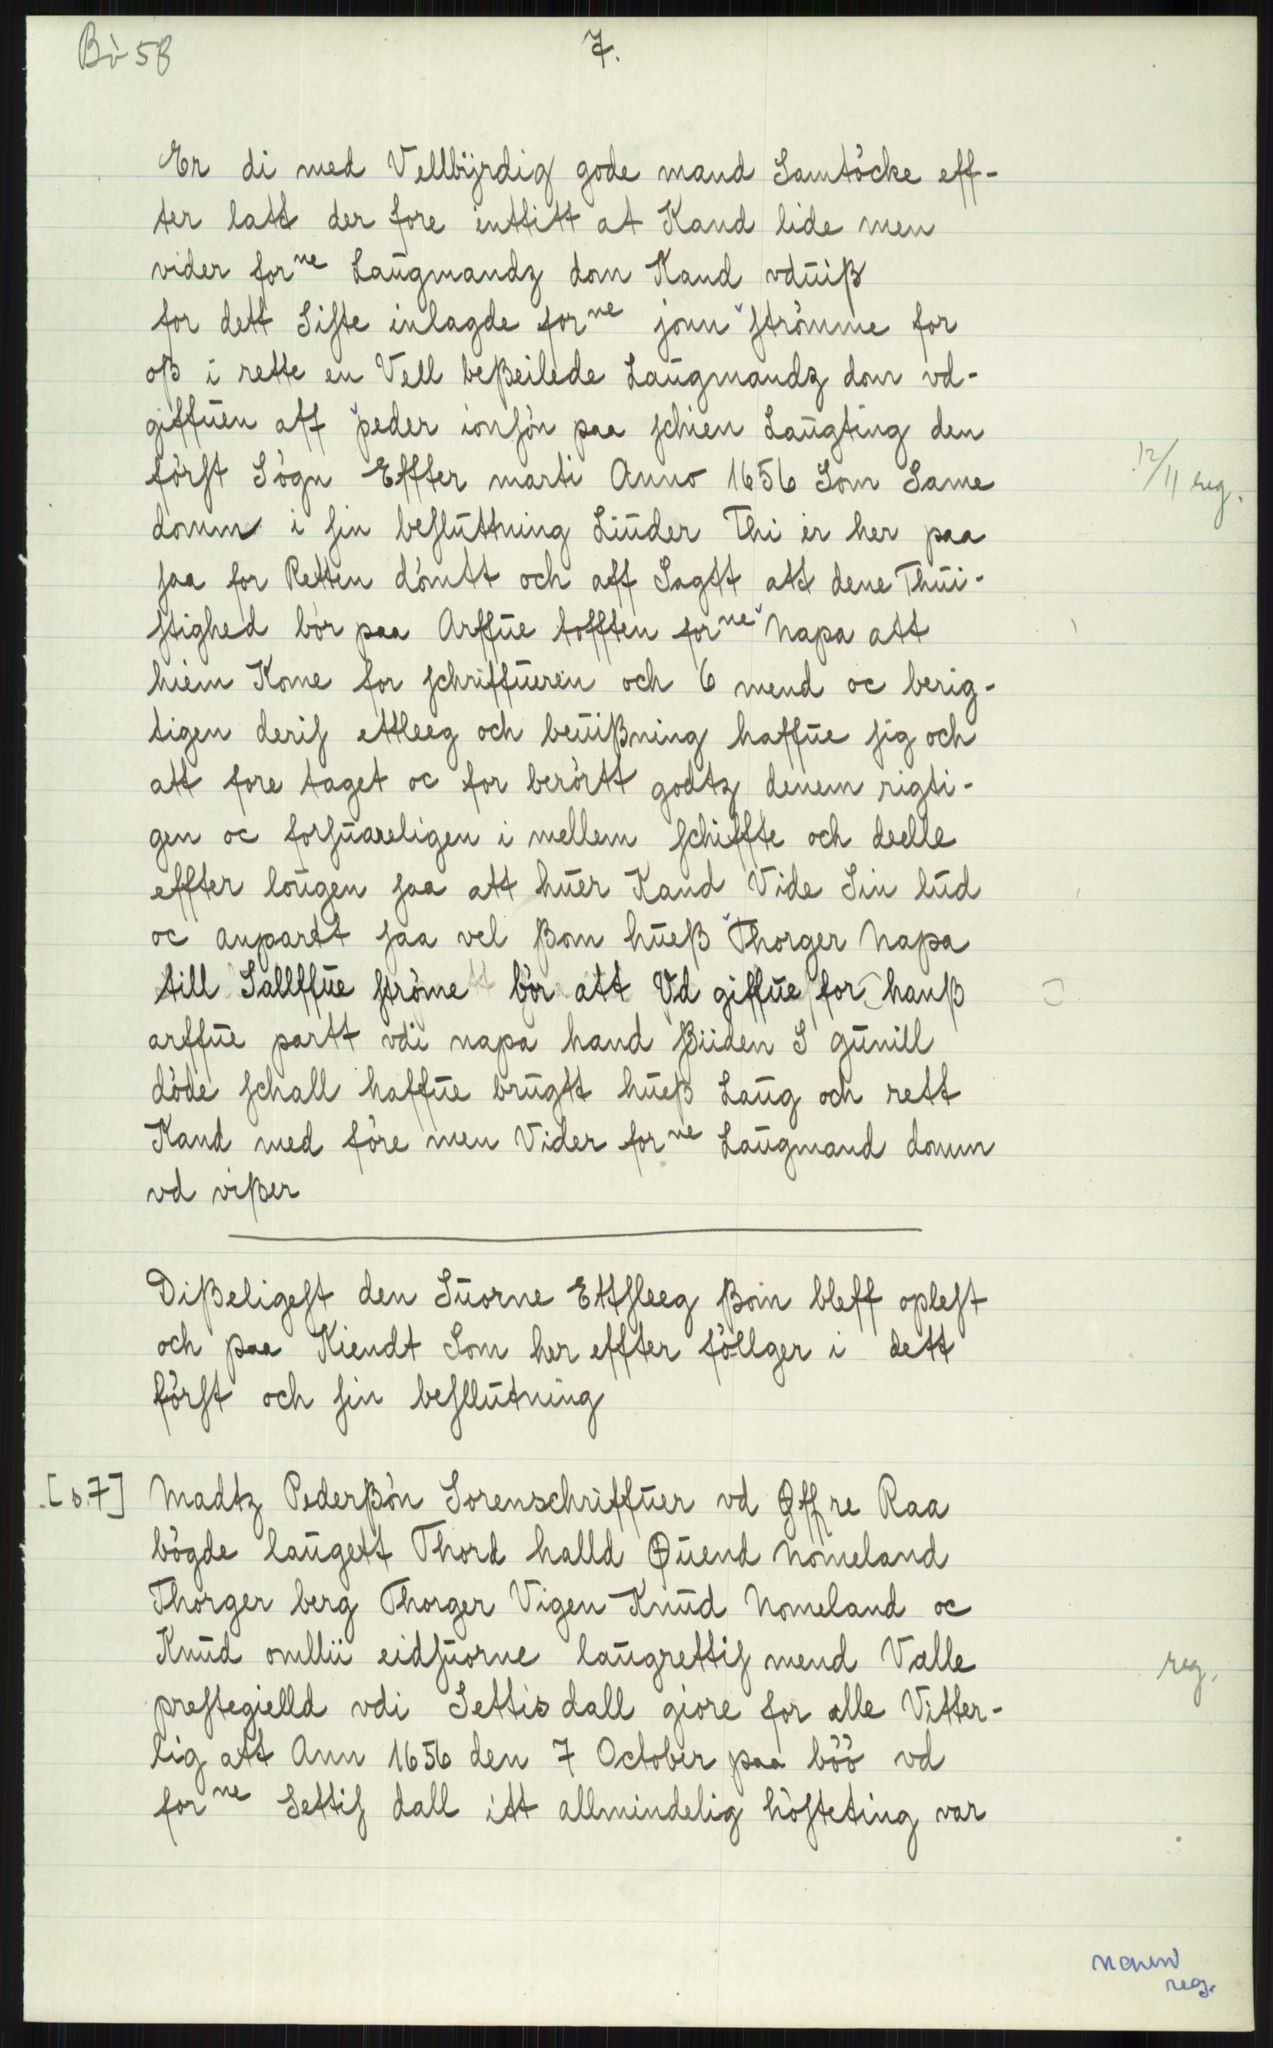 Bö 58
7.
Er di med Vellbÿrdig gode mand Samtöcke eff-
ter latt der fore inttitt at Kand lide men
vider forne Laŭgmandz dom Kand vdŭiß
for dett Siste inlagde forne jonn strömme for
oß i rette en Vell beßeilede Laŭgmandz dom vd-
giffŭen aff peder ionsön paa schien Laŭgting den
först Sögn Effter marti Anno 1656 Som Same
12/11 reg.
domm i sin beslŭttning Liŭder Thi er her paa
saa for Retten dömtt och aff Sagtt att dene Thŭi-
stighed bör paa Arffŭe tofften forne Napa att
hiem Kome for schriffŭeren och 6 mend oc berig-
tigen deris ettleeg och beŭißning haffŭe sig och
att fore taget oc for berörtt godtz denem rigti-
gen oc forsŭareligen i mellem schiffte och deelle
effter loŭgen saa att hŭer Kand Vide Sin lŭd
oc anpartt saa vel ßom hŭeß Thorger Napa
till Sallffŭe ströme bör att Vd giffŭe for hanß
arffŭe partt vdi napa hand ßiiden S gŭnill
döde schall haffŭe brŭgtt hŭeß Laŭg och rett
Kand med före men Vider forne Laŭgmand domm
vd vißer
Dißeligest den Sŭorne Ettsleeg ßom bleff oplest
och paa Kiendt Som her effter föllger i dett
först och sin besllŭtning
[s.7] Madtz Pederßön Sorenschriffŭer vd Øffre Raa
bögde laŭgett Thord halld Øŭend Nomeland
Thorger berg Thorger Vigen Knŭd Nomeland oc
Knŭd omllii eidsŭorne laŭgrettis mend Valle
prestegielld vdi Settis dall giore for alle Vitter-
reg.
lig att Ann 1656 den 7 October paa böö vd
forne Settis dall itt allmindelig hösteting var
navn
reg.